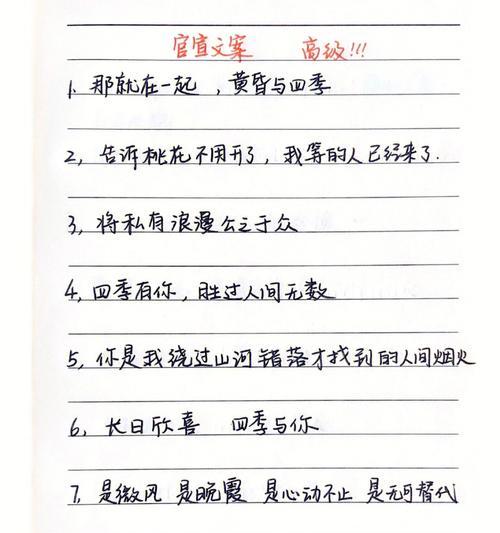 官宣文案 高级!!!
1. 那就在一起 ，黄昏与四季
2，告诉桃花不用开了，我等的人已经来了.
3，将私有浪漫公之于众
4，四季有你，胜过人间无数
5，你是我绕过山河错落才找到的人间烟火
6，长日欣喜 四季与你
7，是微风 是晚霞 是心动不止 是无可替代